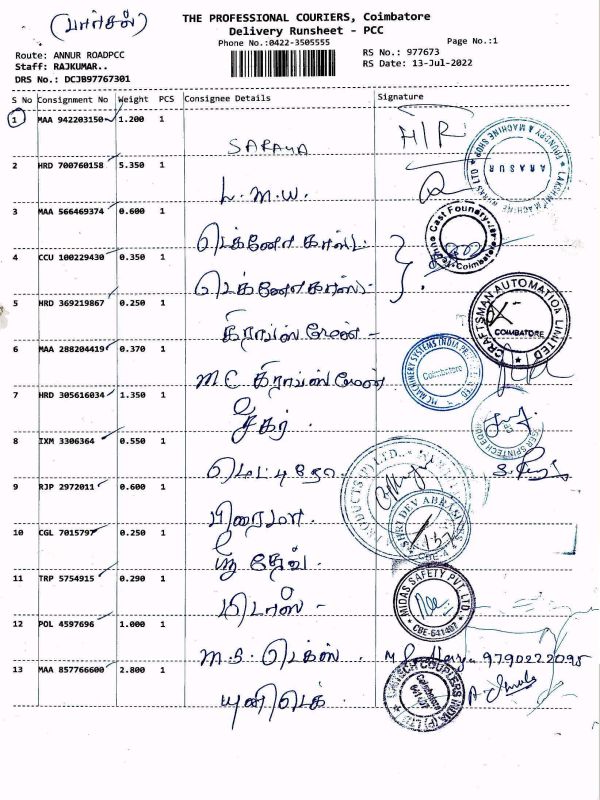 (பார்சல்)
THE PROFESSIONAL COURIERS, Coimbatore
Delivery Runsheet - PCC
Phone No.:0422-3505555
Page No.:1
Route: ANNUR ROADPCC
RS No.: 977673
Staff: RAJKUMAR..
RS Date: 13-Jul-2022
DRS No.: DCJB97767301
S No Consignment No Weight PCS Consignee Details Signature
1 MAA 942203150 1.200 1
SARAYA
H/R
2 HRD 700760158 5.350 1
L.M.W.
3 MAA 566469374 0.600 1
டெக்னோ காஸ்ட்
4 CCU 100229430 0.350 1
டெக்னோ காஸ்ட்
5 HRD 369219867 0.250 1
கிராப்ஸ்மேன் -
CRAFTSMAN AUTOMATION LIMITED
COIMBATORE
6 MAA 288204419 0.370 1
M.C கிராப்ஸ்மேன்
MC MACHINERY SYSTEMS INDIA
Coimbatore
7 HRD 305616034 1.350 1
சீகர்
8 IXM 3306364 0.550 1
9 RJP 2972011 0.600 1
பிரைமா.
SHRI DEV ABRASIVES
CBE-4
10 CGL 7015797 0.250 1
ஸ்ரீ தேவ்.
11 TRP 5754915 0.290 1
மிடாஸ் -
MIDAS SAFETY PVT. LTD.
CBE-641407
12 POL 4597696 1.000 1
M.S. டெக்ஸ்.
9790222095
13 MAA 857766600 2.800 1
யுனிடெக்
COUPLERS INDIA (P) LTD
Coimbatore